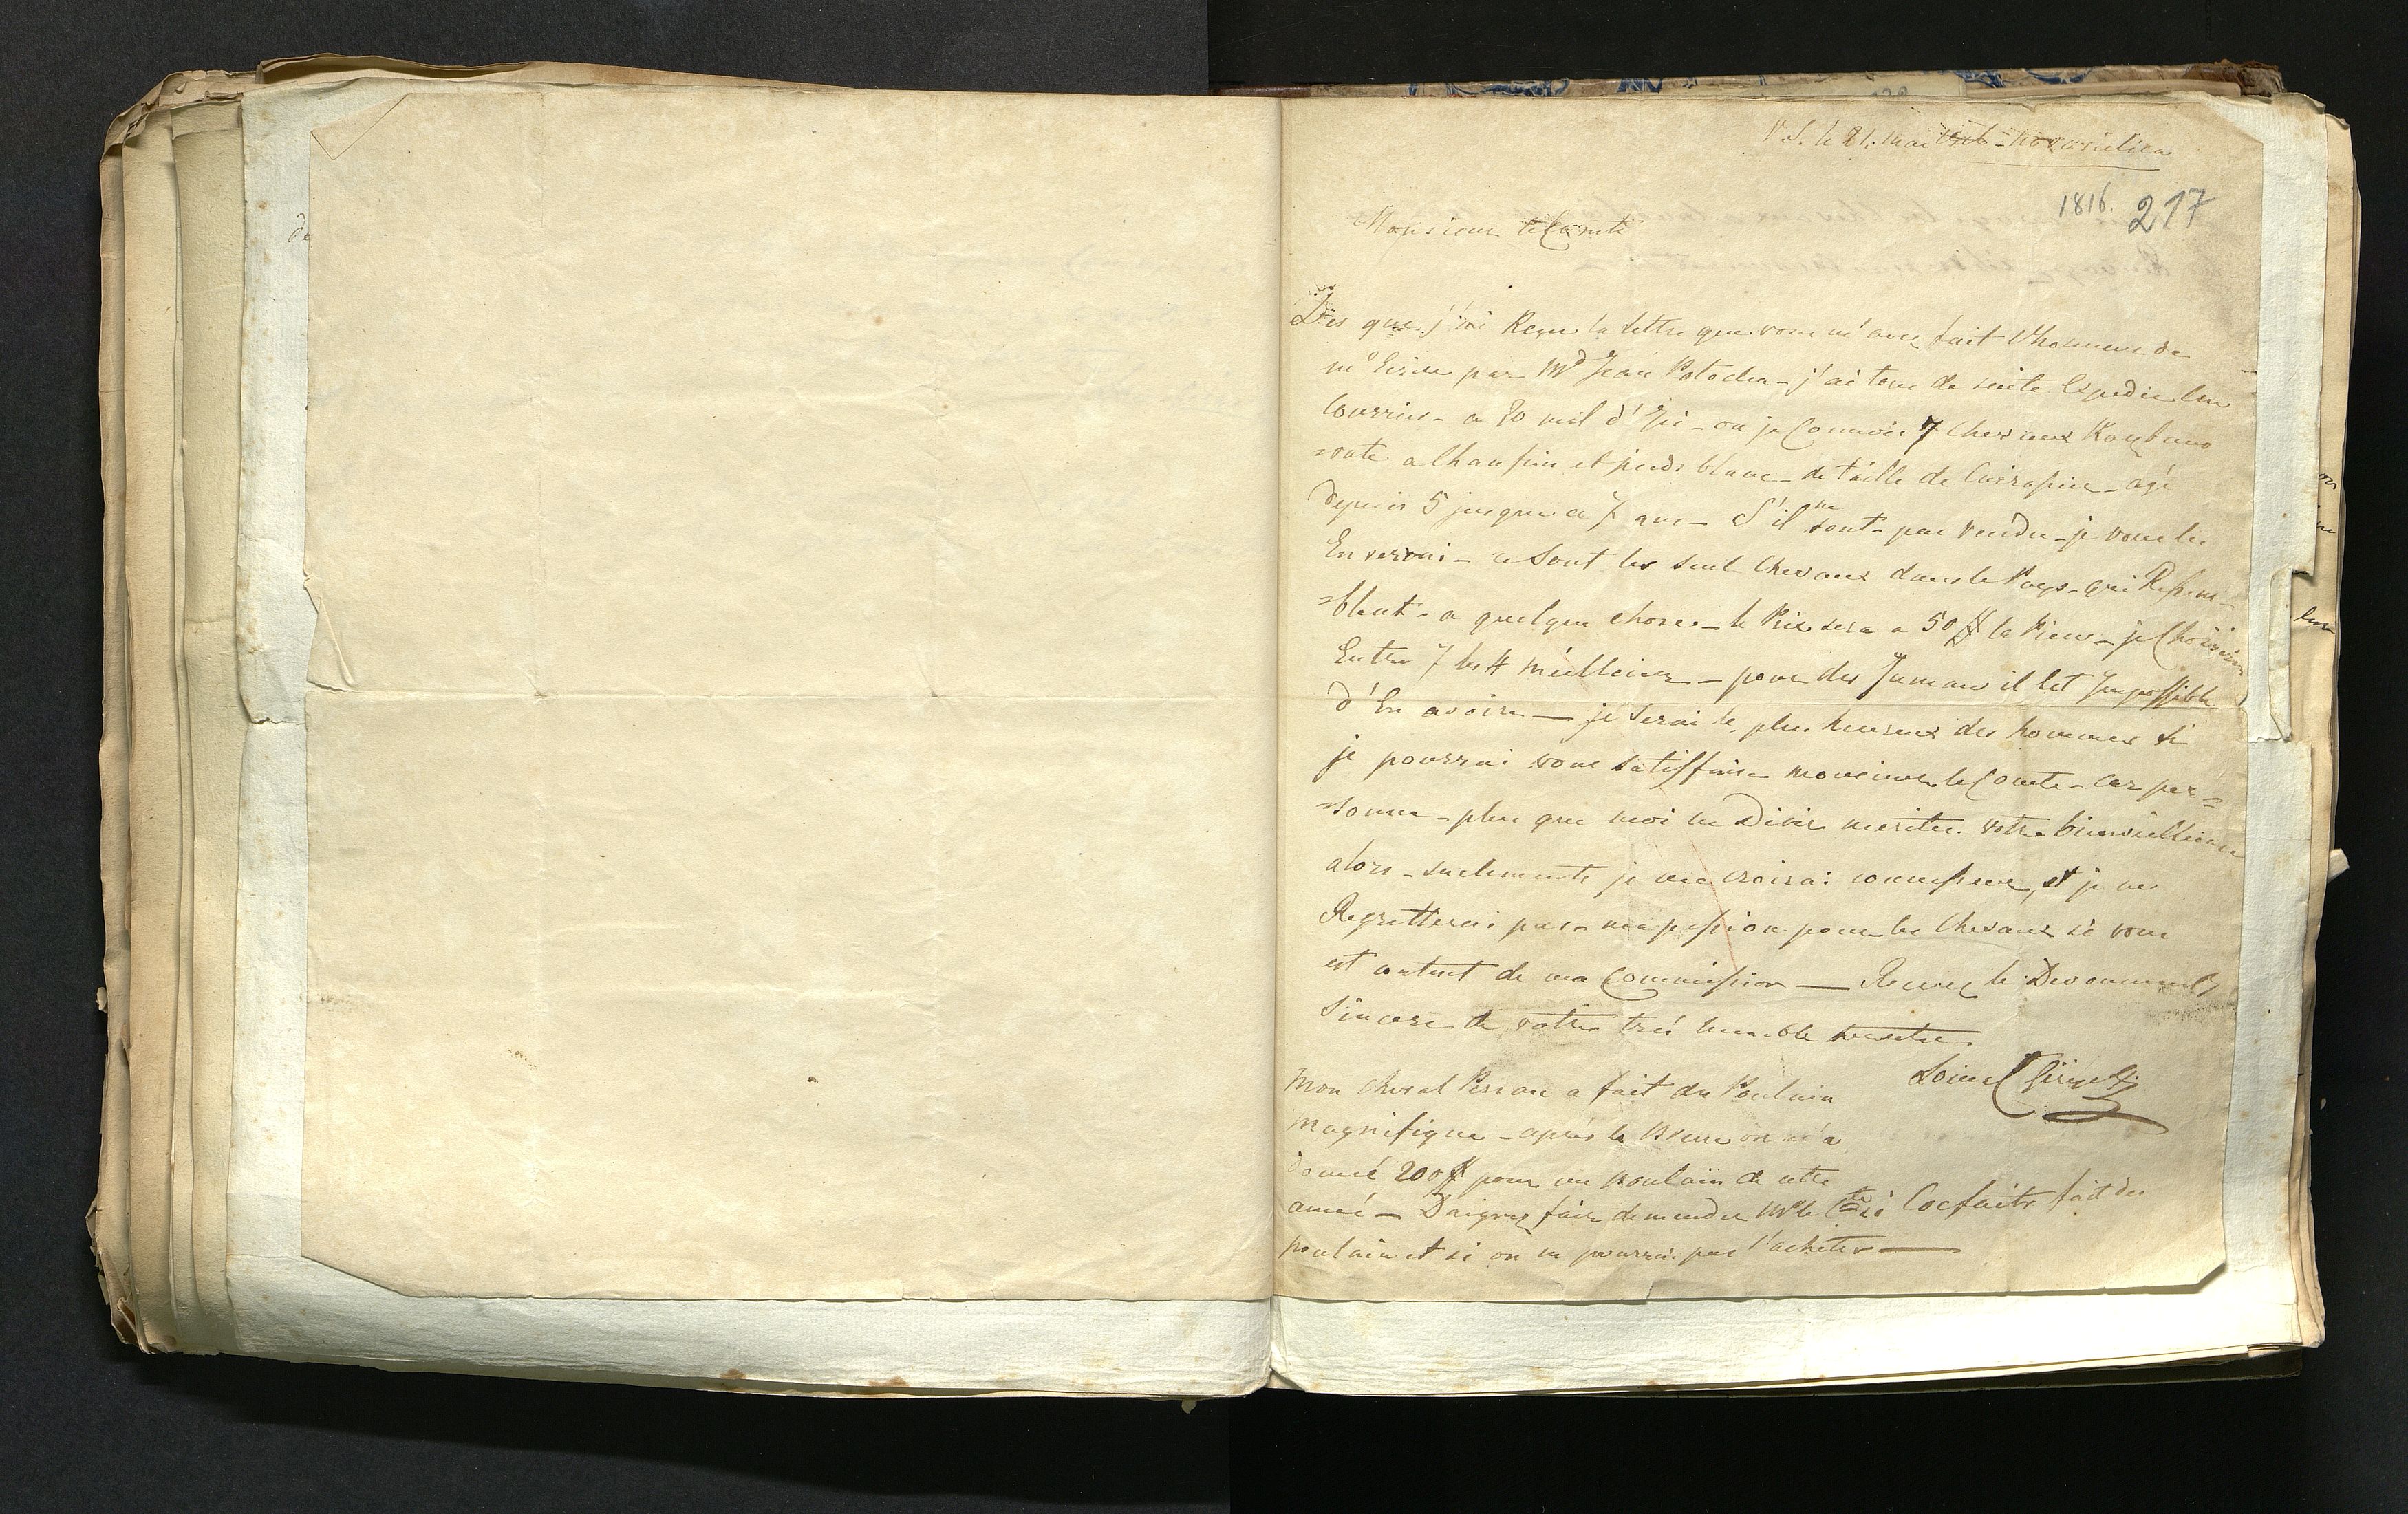 V. S. le 21. mai
1816. 217
Monsieur le Comte
Des que j'ai Reçu la lettre que vous m'avez fait l'honneur de
m'Ecrire par Md Jean Potocka - j'ai tout de suite Expedie un
Courrier - a 80 mil d'ici - ou je Connois 7 Chevaux
a Chanfrin et pieds blanc - de taille de Cuirassier - agé
depuis 5 jusque a 7 ans - S'il ne sont - pas vendu - je vous les
Enverrai - ce Sont les seul Chevaux dans le Pays - qui Ressem-
=blent - a quelque chose - le Prix sera a 50 # la Piece - je Choisirai
Entre 7 les 4 meilleiure - pour des Jumans il Est Impossible
d'En avoire — je serai le plus heureux des hommes si
je pourrai vous satisffaire monsieur le Comte - car per=
=sonne - plus que moi ne Desire meriter votre bienveilliance
alors - seulemente je me croirai connesseur, et je ne
Regretterai pas ma passion pour les Chevaux si vous
est contant de ma Commission — Recevez le Devouement
Sincere de votre tres humble
Mon cheval Persan a fait des Poulain
magnifique - après la on m'a
donné 200 # pour un poulain de cette
anneé — Daignez faire demander Mr le Cte si Cocfaits fait des
poulain et si on ne pourrai pas l'acheter —